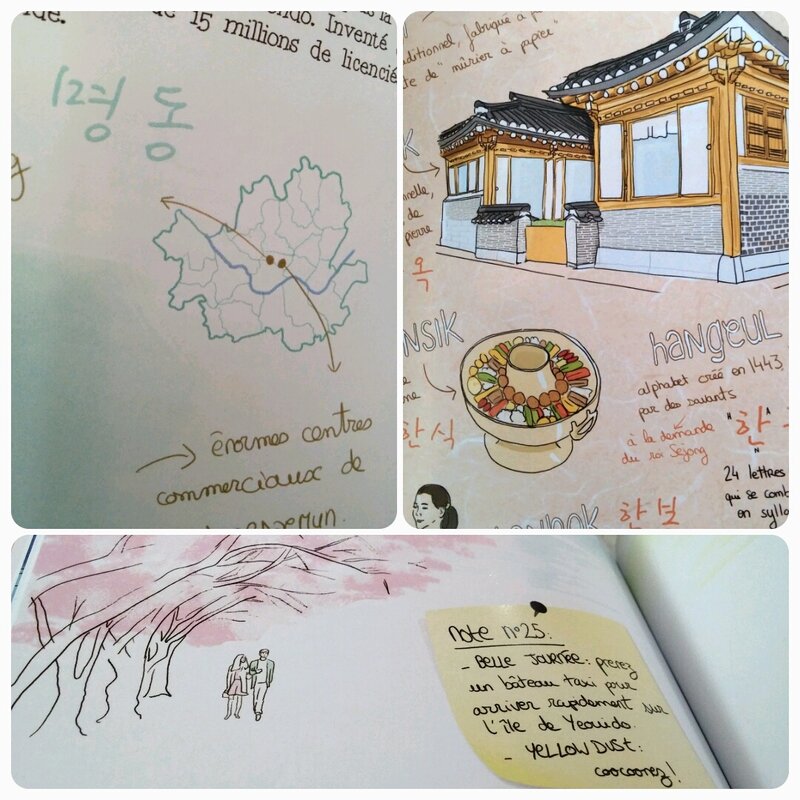 ndo. Inventé
de 15 millions de licencié
명동
g
→ énormes centres
commerciaux de
aditionnel, fabriqué à p
te de "mûrier à papier"
K
nnelle,
de
pierre
옥
NSIK
한식
haNGEUL
alphabet créé en 1443
par des savants
à la demande
du roi Sejong
H A
"한
N
24 lettres
qui se comb
en sylla
한복
Note n°25:
- BELLE JOURNÉE: prenez
un bâteau taxi pour
arriver rapidement sur
l'île de Yeouido.
- YELLOW DUST:
coocoonez!